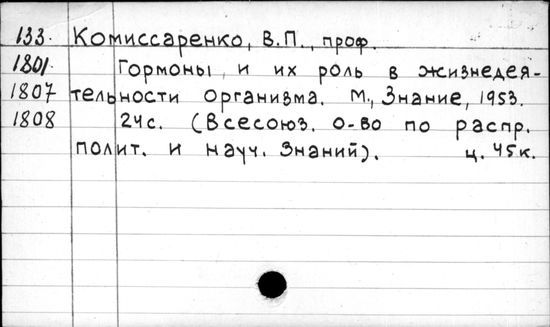 133. Комиссаренко, В.П., проф.
1801. Гормоны и их роль в жизнедея-
1807 тельности организма. М., Знание, 1953.
1808 24с. (Всесоюз. о-во по распр.
полит. и науч. Знаний). ц. 45к.